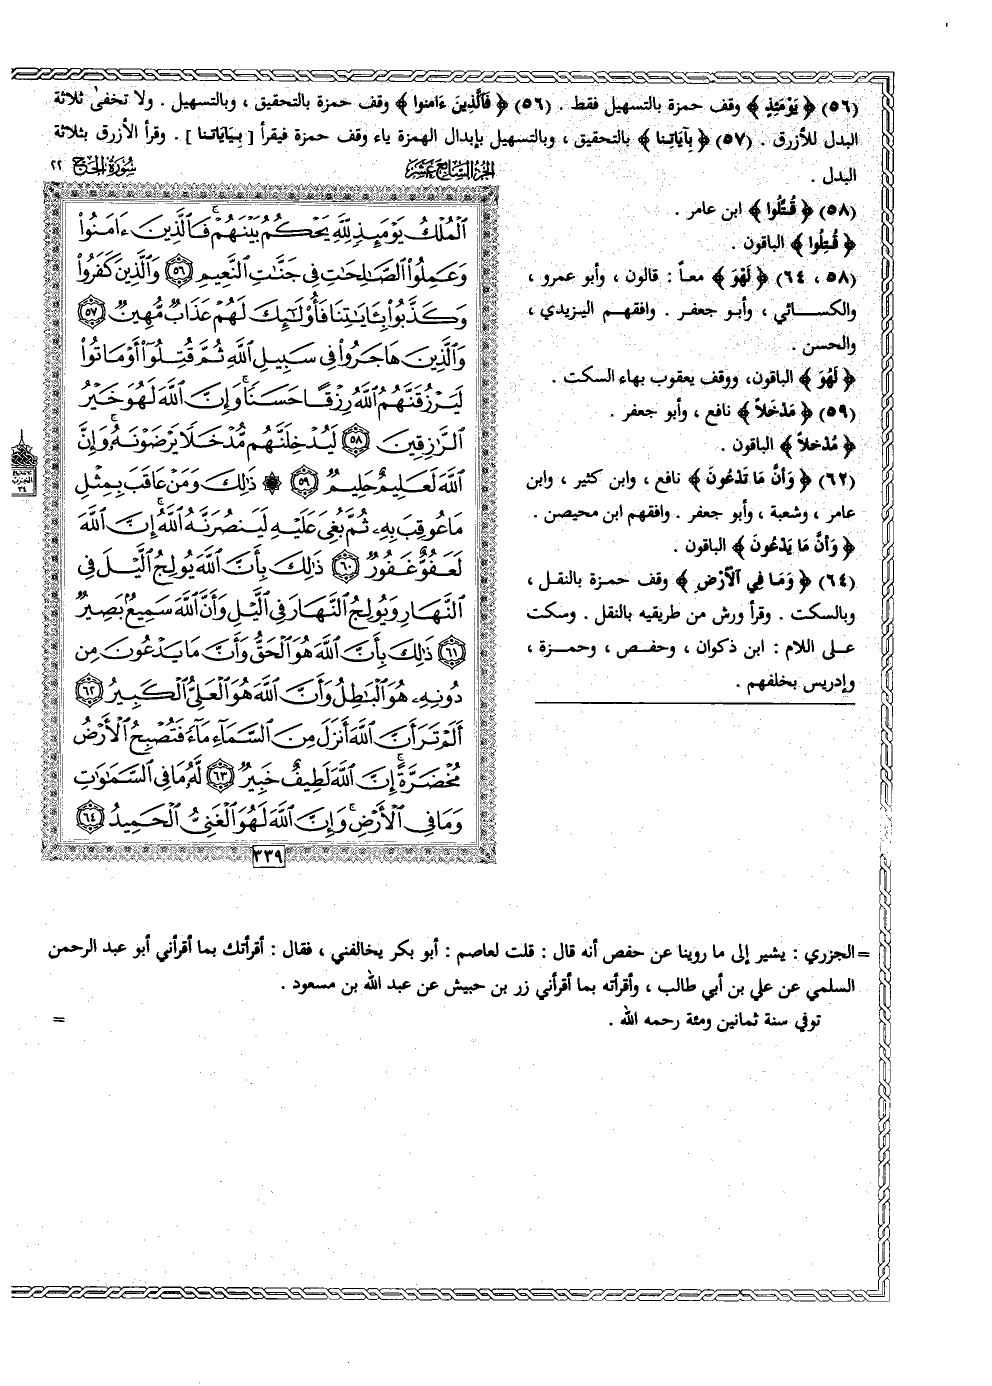 (٥٦) ﴿ يَوْمَئِذٍ ﴾ وقف حمزة بالتسهيل فقط . (٥٦) ﴿ فَالَّذِينَ ءَامَنوا ﴾ وقف حمزة بالتحقيق ، وبالتسهيل . ولا تخفىٰ ثلاثة
البدل للأزرق . (٥٧) ﴿ بِآيَاتِنا ﴾ بالتحقيق ، وبالتسهيل بإبدال الهمزة ياء وقف حمزة فيقرأ [ بِيَايَاتنا ] . وقرأ الأزرق بثلاثة
البدل .
(٥٨) ﴿ قُتِّلُوا ﴾ ابن عامر .
﴿ قُتِلُوا ﴾ الباقون .
(٥٨ ، ٦٤) ﴿ لَهْوَ ﴾ معاً : قالون ، وأبو عمرو ،
والكسائي ، وأبو جعفر . وافقهم اليزيدي ،
والحسن .
﴿ لَهُوَ ﴾ الباقون، ووقف يعقوب بهاء السكت .
(٥٩) ﴿ مَدْخَلاً ﴾ نافع ، وأبو جعفر .
﴿ مُدْخلاً ﴾ الباقون .
(٦٢) ﴿ وَأَنَّ مَا تَدْعُونَ ﴾ نافع ، وابن كثير ، وابن
عامر ، وشعبة ، وأبو جعفر . وافقهم ابن محيصن .
﴿ وَأَنَّ مَا يَدْعُونَ ﴾ الباقون .
(٦٤) ﴿ وَمَا فِي الْأَرْضِ ﴾ وقف حمزة بالنقل ،
وبالسكت . وقرأ ورش من طريقيه بالنقل . وسكت
على اللام : ابن ذكوان ، وحفص ، وحمزة ،
وإدريس بخلفهم .
الجزء السابع عشر
سورة الحج ٢٢
ٱلْمُلْكُ يَوْمَئِذٍ لِّلَّهِ يَحْكُمُ بَيْنَهُمْ ۚ فَٱلَّذِينَ ءَامَنُوا۟
وَعَمِلُوا۟ ٱلصَّـٰلِحَـٰتِ فِى جَنَّـٰتِ ٱلنَّعِيمِ ٥٦ وَٱلَّذِينَ كَفَرُوا۟
وَكَذَّبُوا۟ بِـَٔايَـٰتِنَا فَأُو۟لَـٰٓئِكَ لَهُمْ عَذَابٌ مُّهِينٌ ٥٧
وَٱلَّذِينَ هَاجَرُوا۟ فِى سَبِيلِ ٱللَّهِ ثُمَّ قُتِلُوٓا۟ أَوْ مَاتُوا۟
لَيَرْزُقَنَّهُمُ ٱللَّهُ رِزْقًا حَسَنًا ۚ وَإِنَّ ٱللَّهَ لَهُوَ خَيْرُ
ٱلرَّٰزِقِينَ ٥٨ لَيُدْخِلَنَّهُم مُّدْخَلًا يَرْضَوْنَهُۥ ۗ وَإِنَّ
ٱللَّهَ لَعَلِيمٌ حَلِيمٌ ٥٩ ۞ ذَٰلِكَ وَمَنْ عَاقَبَ بِمِثْلِ
مَا عُوقِبَ بِهِۦ ثُمَّ بُغِىَ عَلَيْهِ لَيَنصُرَنَّهُ ٱللَّهُ ۗ إِنَّ ٱللَّهَ
لَعَفُوٌّ غَفُورٌ ٦٠ ذَٰلِكَ بِأَنَّ ٱللَّهَ يُولِجُ ٱلَّيْلَ فِى
ٱلنَّهَارِ وَيُولِجُ ٱلنَّهَارَ فِى ٱلَّيْلِ وَأَنَّ ٱللَّهَ سَمِيعٌۢ بَصِيرٌ
٦١ ذَٰلِكَ بِأَنَّ ٱللَّهَ هُوَ ٱلْحَقُّ وَأَنَّ مَا يَدْعُونَ مِن
دُونِهِۦ هُوَ ٱلْبَـٰطِلُ وَأَنَّ ٱللَّهَ هُوَ ٱلْعَلِىُّ ٱلْكَبِيرُ ٦٢
أَلَمْ تَرَ أَنَّ ٱللَّهَ أَنزَلَ مِنَ ٱلسَّمَآءِ مَآءً فَتُصْبِحُ ٱلْأَرْضُ
مُخْضَرَّةً ۗ إِنَّ ٱللَّهَ لَطِيفٌ خَبِيرٌ ٦٣ لَّهُۥ مَا فِى ٱلسَّمَـٰوَٰتِ
وَمَا فِى ٱلْأَرْضِ ۗ وَإِنَّ ٱللَّهَ لَهُوَ ٱلْغَنِىُّ ٱلْحَمِيدُ ٦٤
٣٣٩
= الجزري : يشير إلى ما روينا عن حفص أنه قال : قلت لعاصم : أبو بكر يخالفني ، فقال : أقرأتك بما أقرأني أبو عبد الرحمن
السلمي عن علي بن أبي طالب ، وأقرأته بما أقرأني زر بن حبيش عن عبد الله بن مسعود .
توفي سنة ثمانين ومئة رحمه الله . =